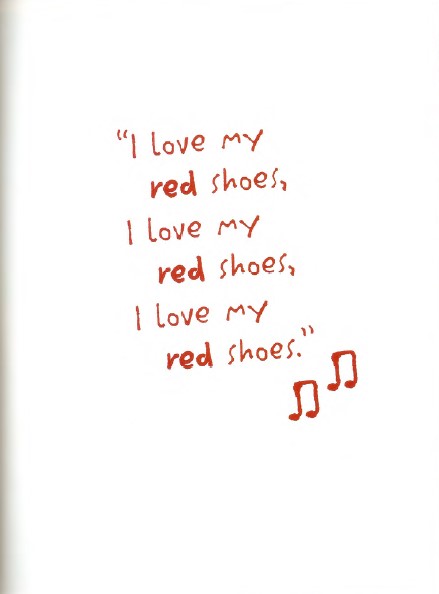 “I love my
red shoes,
I love my
red shoes,
I love my
red shoes.”